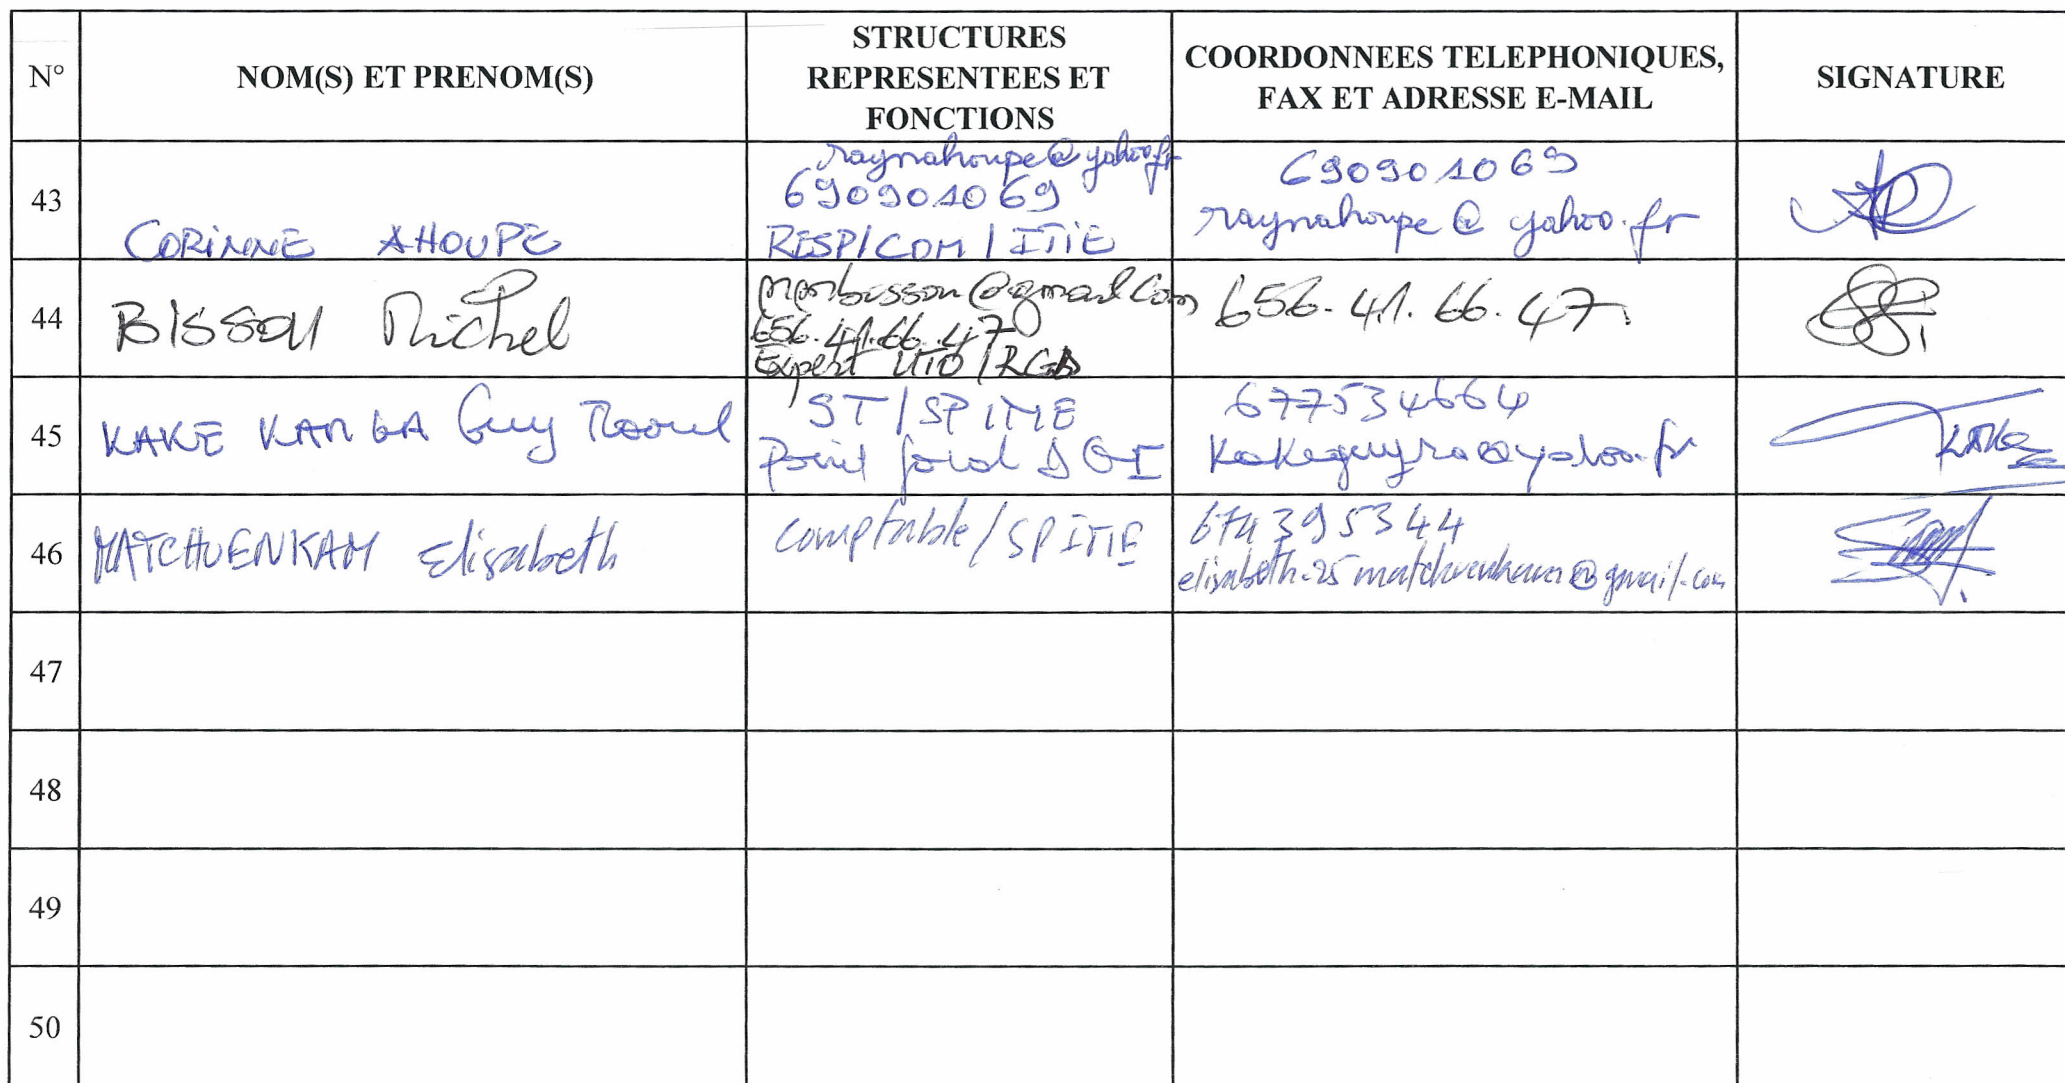 N°
NOM(S) ET PRENOM(S)
STRUCTURES
REPRESENTEES ET
FONCTIONS
COORDONNEES TELEPHONIQUES,
FAX ET ADRESSE E-MAIL
SIGNATURE
43
CORINNE AHOUPE
raynahoupe@yahoo.fr
690901069
RESP/COM/ITIE
690901069
raynahoupe@yahoo.fr
44
BISSOU Michel
656.41.66.47
Expert
656.41.66.47
45
KAKE KAMGA Guy Raoul
ST/SPITIE
Point focal DGI
677534664
kakeguyra@yahoo.fr
KAKE
46
MATCHUENKAM Elisabeth
comptable/SPITIE
674395344
elisabeth.25matchuenkam@gmail.com
47
48
49
50